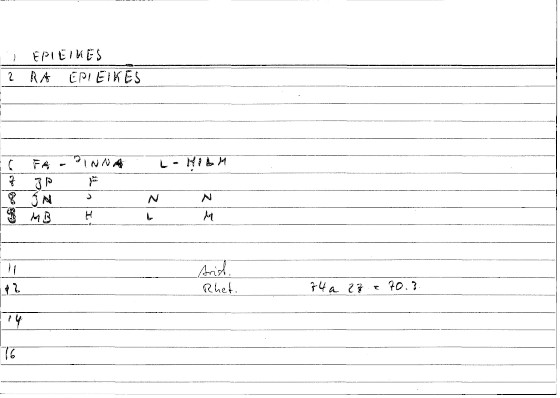 1 EPIEIKES
2 RA EPIEIKES
6 FA - ʾINNA L-ḤILM
7 JP F
8 JN ʾ N N
9 MB H L M
11 Arist.
12 Rhet. 74a 27 = 70.3
14
16